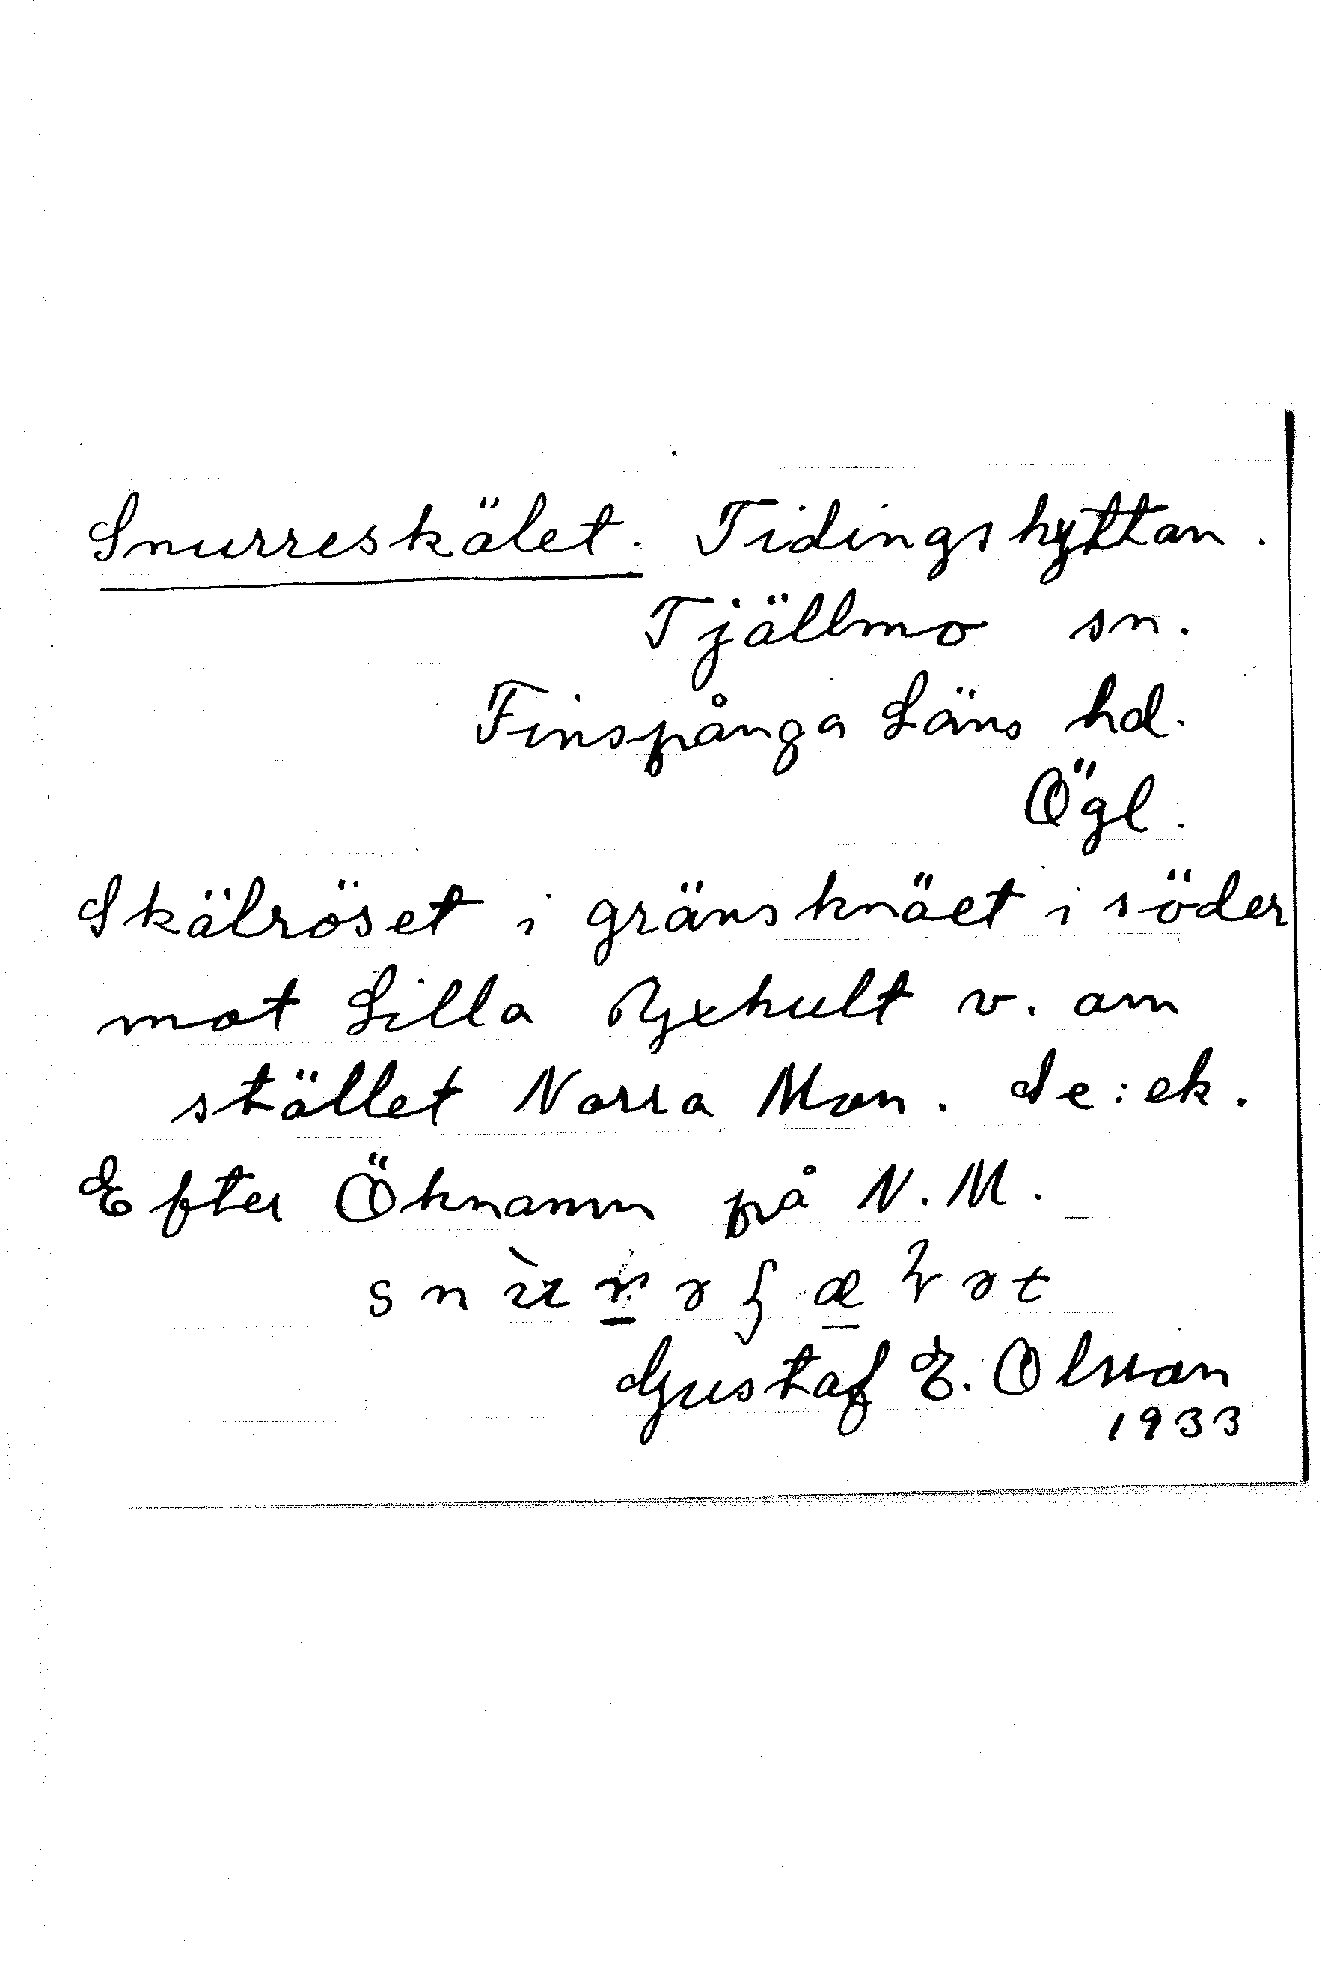 Snurreskälet. Tidingshyttan.
Tjällmo sn.
Finspånga Läns hd.
Ögl.
Skälröset i gränsknäet i söder
mot Lilla Ryxhult v. om
stället Norra Mon. Se: ek.
Efter Öknamn på N. M.
Gustaf E. Olsson
1933